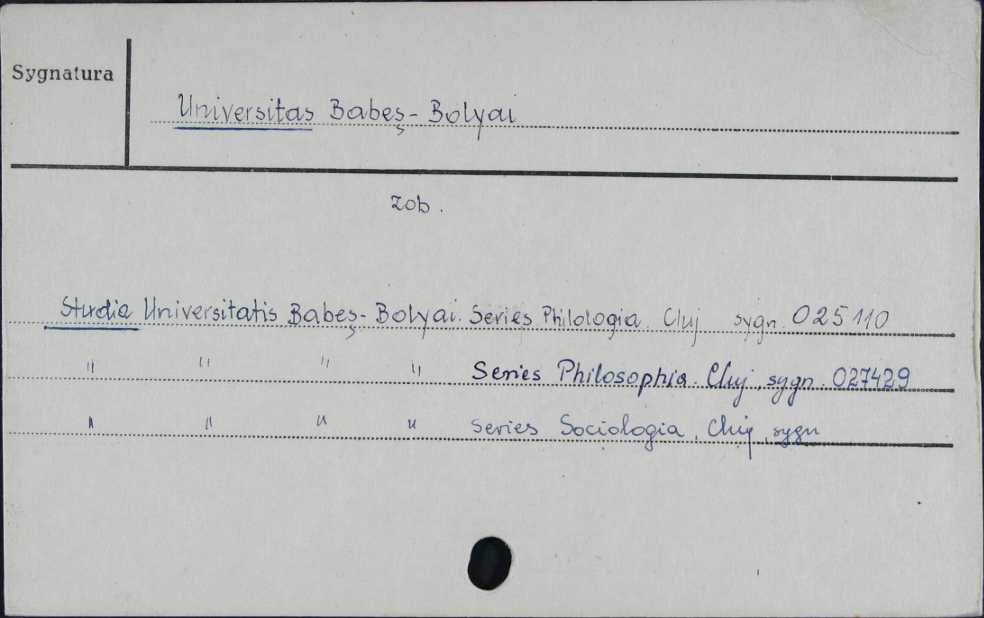 Sygnatura
Universitas Babeş-Bolyai
zob.
Studia Universitatis Babeş-Bolyai. Series Philologia. Cluj sygn. 025110
" " " " Series Philosophia. Cluj, sygn. 027429
" " " " Series Sociologia, Cluj, sygn